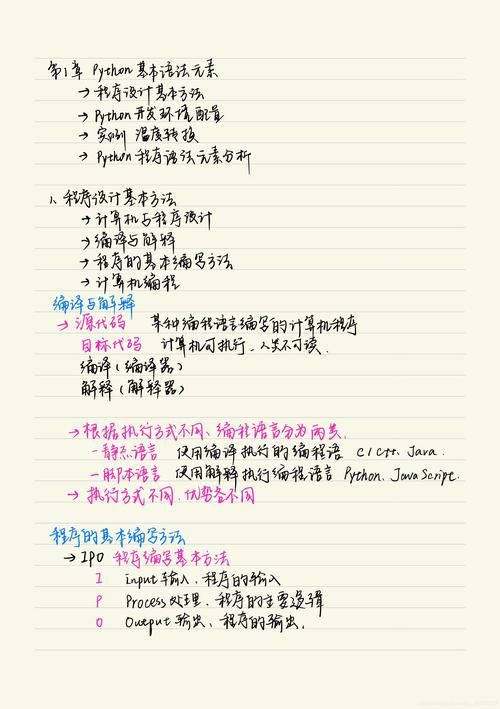 第1章 Python基本语法元素
→ 程序设计基本方法
→ Python开发环境配置
→ 实例 温度转换
→ Python程序语法元素分析
1、程序设计基本方法
→ 计算机与程序设计
→ 编译与解释
→ 程序的基本编写方法
→ 计算机编程
编译与解释
→ 源代码 某种编程语言编写的计算机程序
目标代码 计算机可执行，人类不可读.
编译（编译器）
解释（解释器）
→ 根据执行方式不同、编程语言分为两类.
－静态语言 使用编译执行的编程语 C/C++、Java.
－脚本语言 使用解释执行编程语言 Python、JavaScript.
→ 执行方式不同，优势各不同
程序的基本编写方法
→ IPO 程序编写基本方法
I Input 输入、程序的输入
P Process 处理、程序的主要逻辑
O Output 输出、程序的输出.